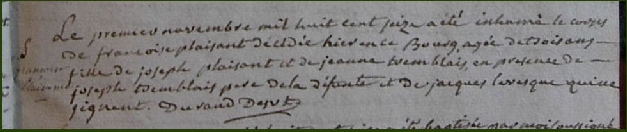 Le premier novembre mil huit cent seize a été inhumé le corps
de francoise plaisant décédée hier en ce Bourg, agée de trois ans
fille de joseph plaisant et de jeanne tremblais, en presence de
joseph tremblais pere de la défunte et de jacques levesque qui ne
signent. Durand Desrt
S
plaisant
baptisée par moi soussigné